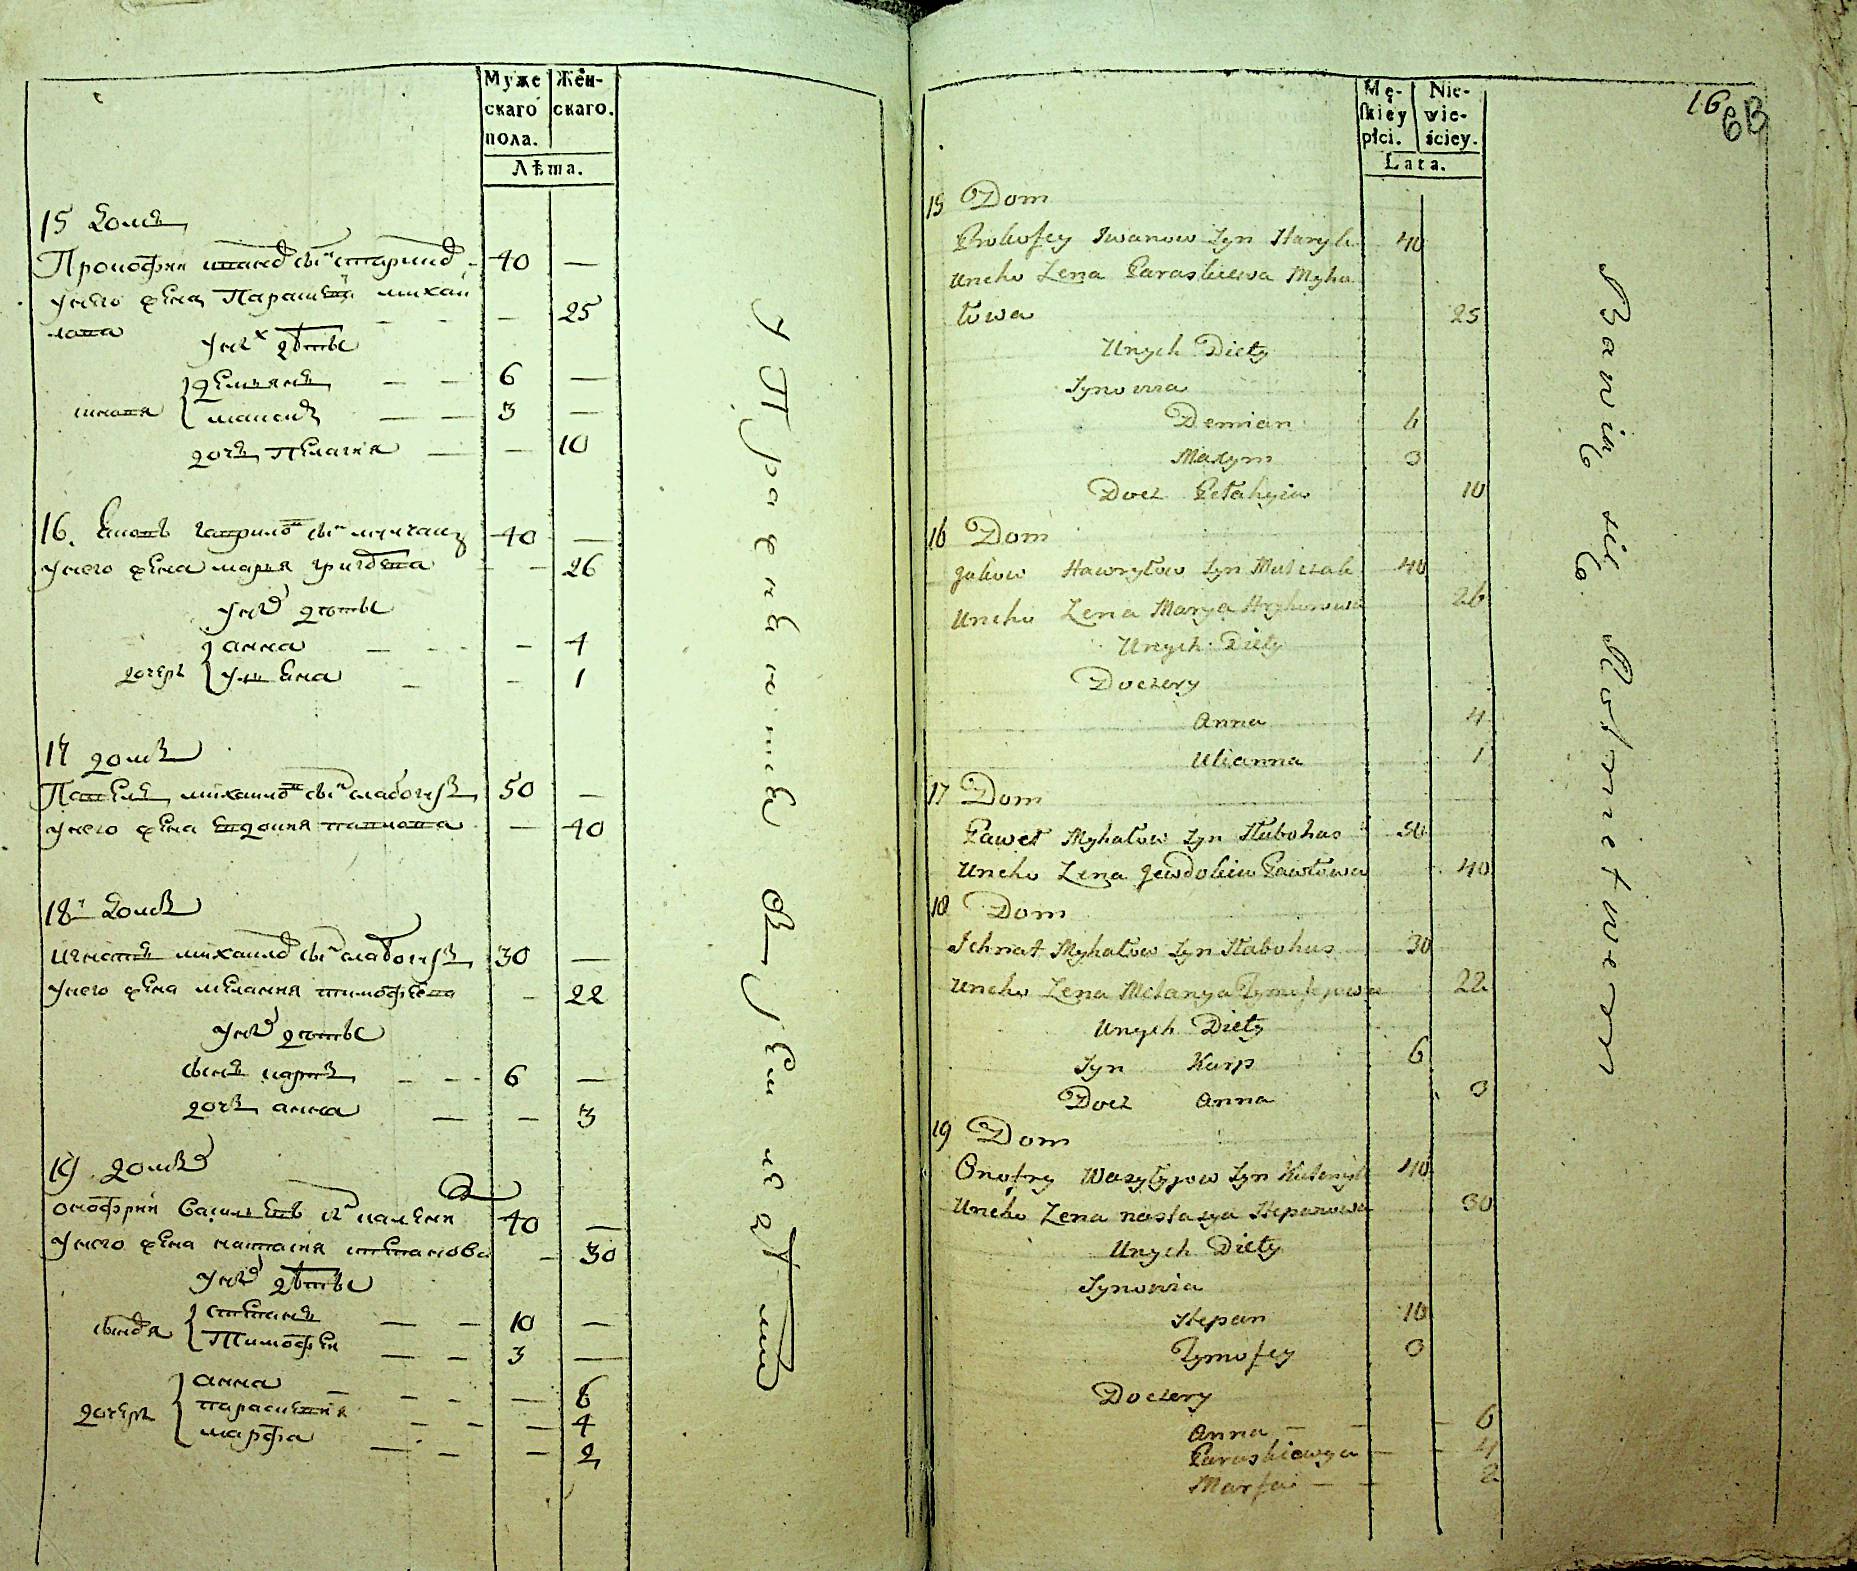 Муже
скаго
пола.
Жен-
скаго.
Лѣта.
15 домъ
Прокофий иванов сын
40 —
у него жена Параскев михай
лова
— 25
у них дѣты
демянъ — — 6 —
максим — — 3 —
дочь пелагия — — 10
16. гаврилов сын
40 —
у него жена марья григорова — — 26
у них дѣты
дочеры
анна — — — 4
улияна — — 1
17 домъ
Павелъ михайлов сын слабоусъ 50 —
у него жена евдокия павлова — 40
18 домъ
игнатъ михайлов сын слабоусъ 30 —
у него жена мелания тимофеева — 22
у них дѣты
сынъ карпъ — — 6 —
дочь анна — — 3
19 домъ
онофрий Василевъ сын
40 —
у него жена настасия степанова — 30
у них дѣты
степанъ — — 10 —
Тимофей — — 3 —
дочеры
анна — — — 6
параскевия — — — 4
марфа — — — 2
Mę-
skiey
płci.
Nie-
wie-
ściey.
Lata.
16
15 Dom
Prokofey Iwanow Syn 40
Uneho Zena Paraskiewa Myha
łowa 25
Unych Diety
Synowia
Demian 6
Maxym 3
Docz Pełahyia 10
16 Dom
Jakow Hawryłow Syn 40
Uneho Zena Marya Hryhorowa 26
Unych Diety
Doczery
Anna 4
Ulianna 1
17 Dom
Paweł Myhałow Syn Słabohus 50
Uneho Zena Jewdokia Pawłowa 40
18 Dom
Ichnat Myhałow Syn Słabohus 30
Uneho Zena Mełanya Tymofejowa 22
Unych Diety
Syn Karp 6
Docz Anna 3
19 Dom
Onofry Wasylyjow Syn 40
Uneho Zena nastasya Stepanowa 30
Unych Diety
Synowia
Stepan 10
Tymofey 3
Doczery
Anna — — 6
Paraskiewya — — 4
Marfa — — 2
Bawią się Rolnictwem